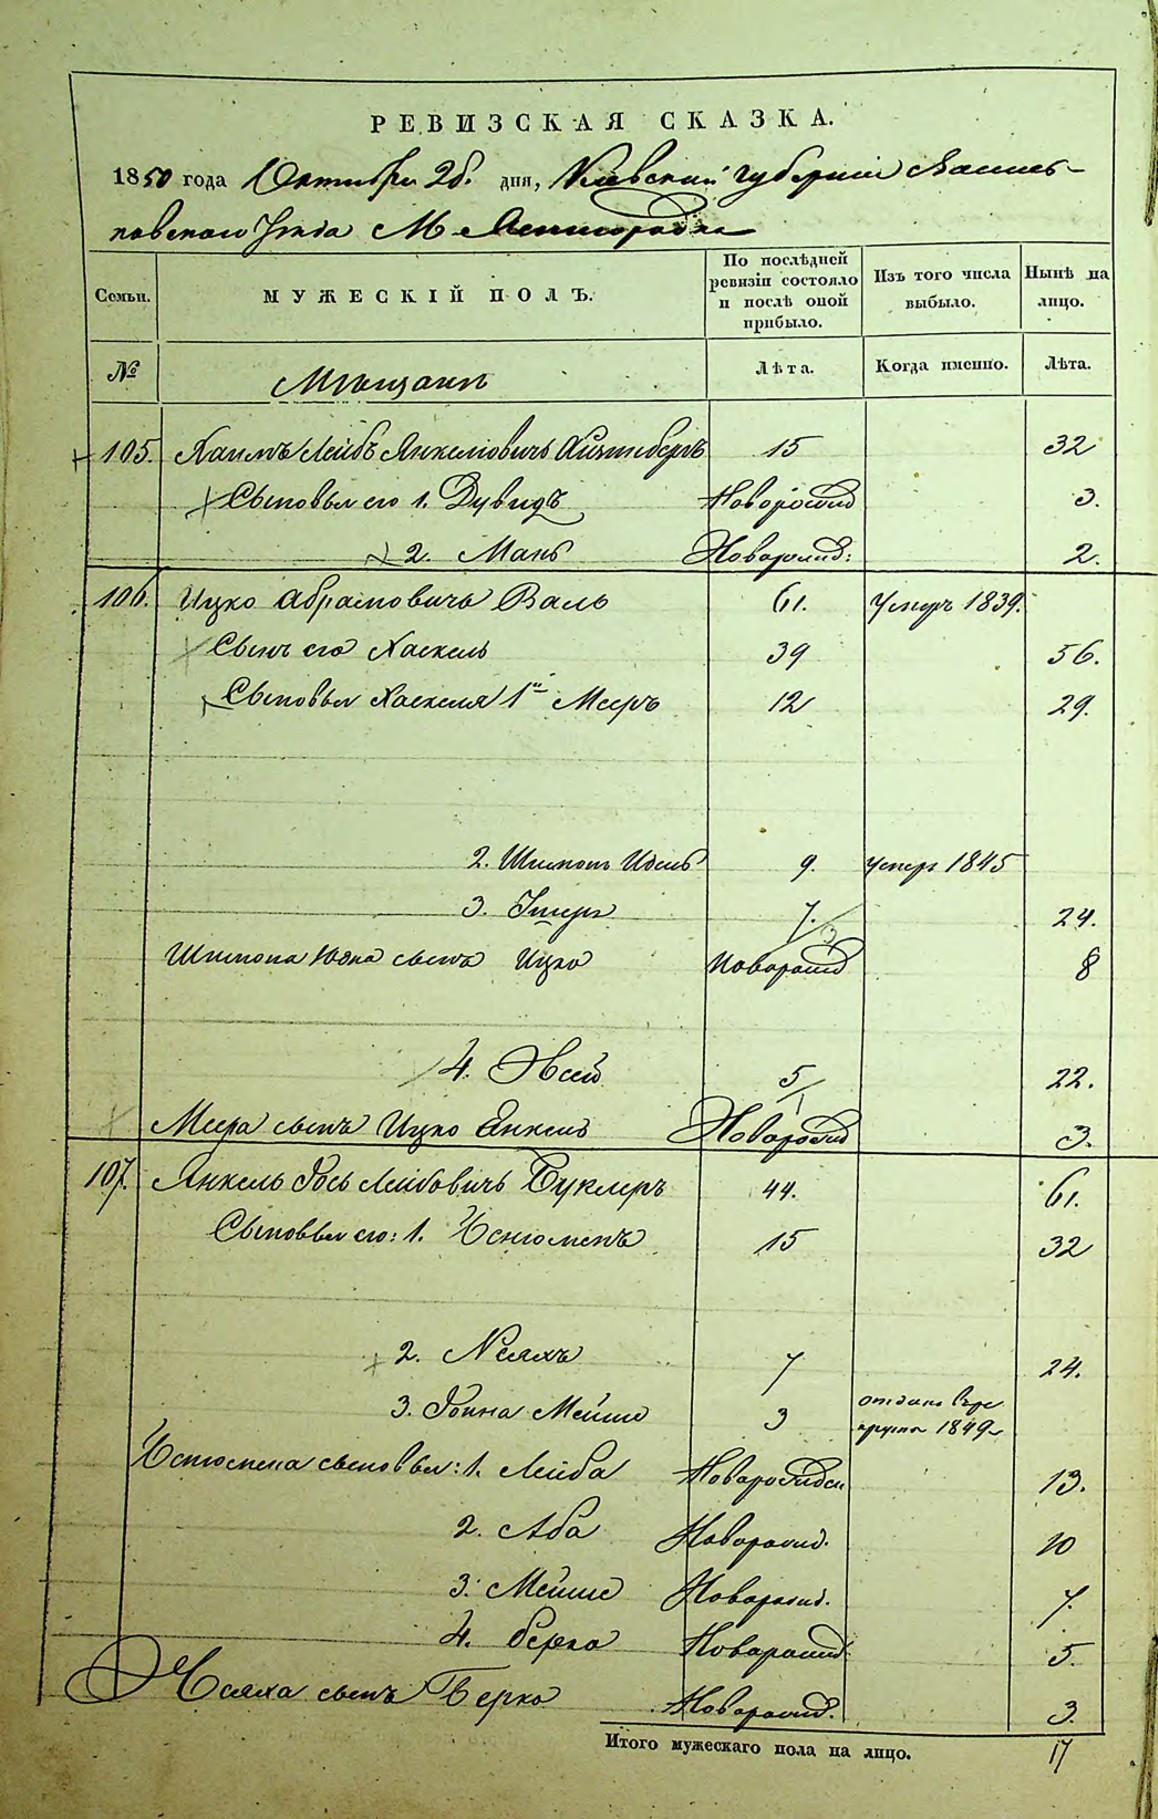 РЕВИЗСКАЯ СКАЗКА.
1850 года Октября 26. дня, Кіевской губерніи Василь-
ковскаго Уѣзда М.
Семьи. МУЖЕСКІЙ ПОЛЪ. По послѣдней ревизіи состояло и послѣ оной прибыло. Изъ того числа выбыло. Нынѣ на лицо.
№ Мѣщане Лѣта. Когда именно. Лѣта.
105. Хаимъ Лейбъ Янкелiовичъ 15 32
Сыновья его 1. Дувидъ Новорожд 3.
2. Мань Новорожд: 2.
106. Ицко Абрамовичъ Валь 61. Умеръ 1839.
Сынъ его Хаскель 39 56.
Сыновья Хаскеля 1й Мееръ 12 29.
2. Шимонъ Юдель 9. умеръ 1845
3. 7. 24.
Шимона Юдка сынъ Ицко Новорожд 8
4. Эвсей 5 22.
Меера сынъ Ицко Янкель Новорожд 3.
107. Янкель Фось Лейбовичъ Буклеръ 44. 61.
Сыновья его: 1. 15 32
2. 7 24.
3. Фоина Мейше 3 отданъ въ ре
круты 1849
сыновья: 1. Лейба Новорожден 13.
2. Аба Новорожд. 10
3. Мейше Новорожд. 7.
4. Берко Новорожд 5.
сынъ Берко Новорожд. 3.
Итого мужескаго пола на лицо. 17